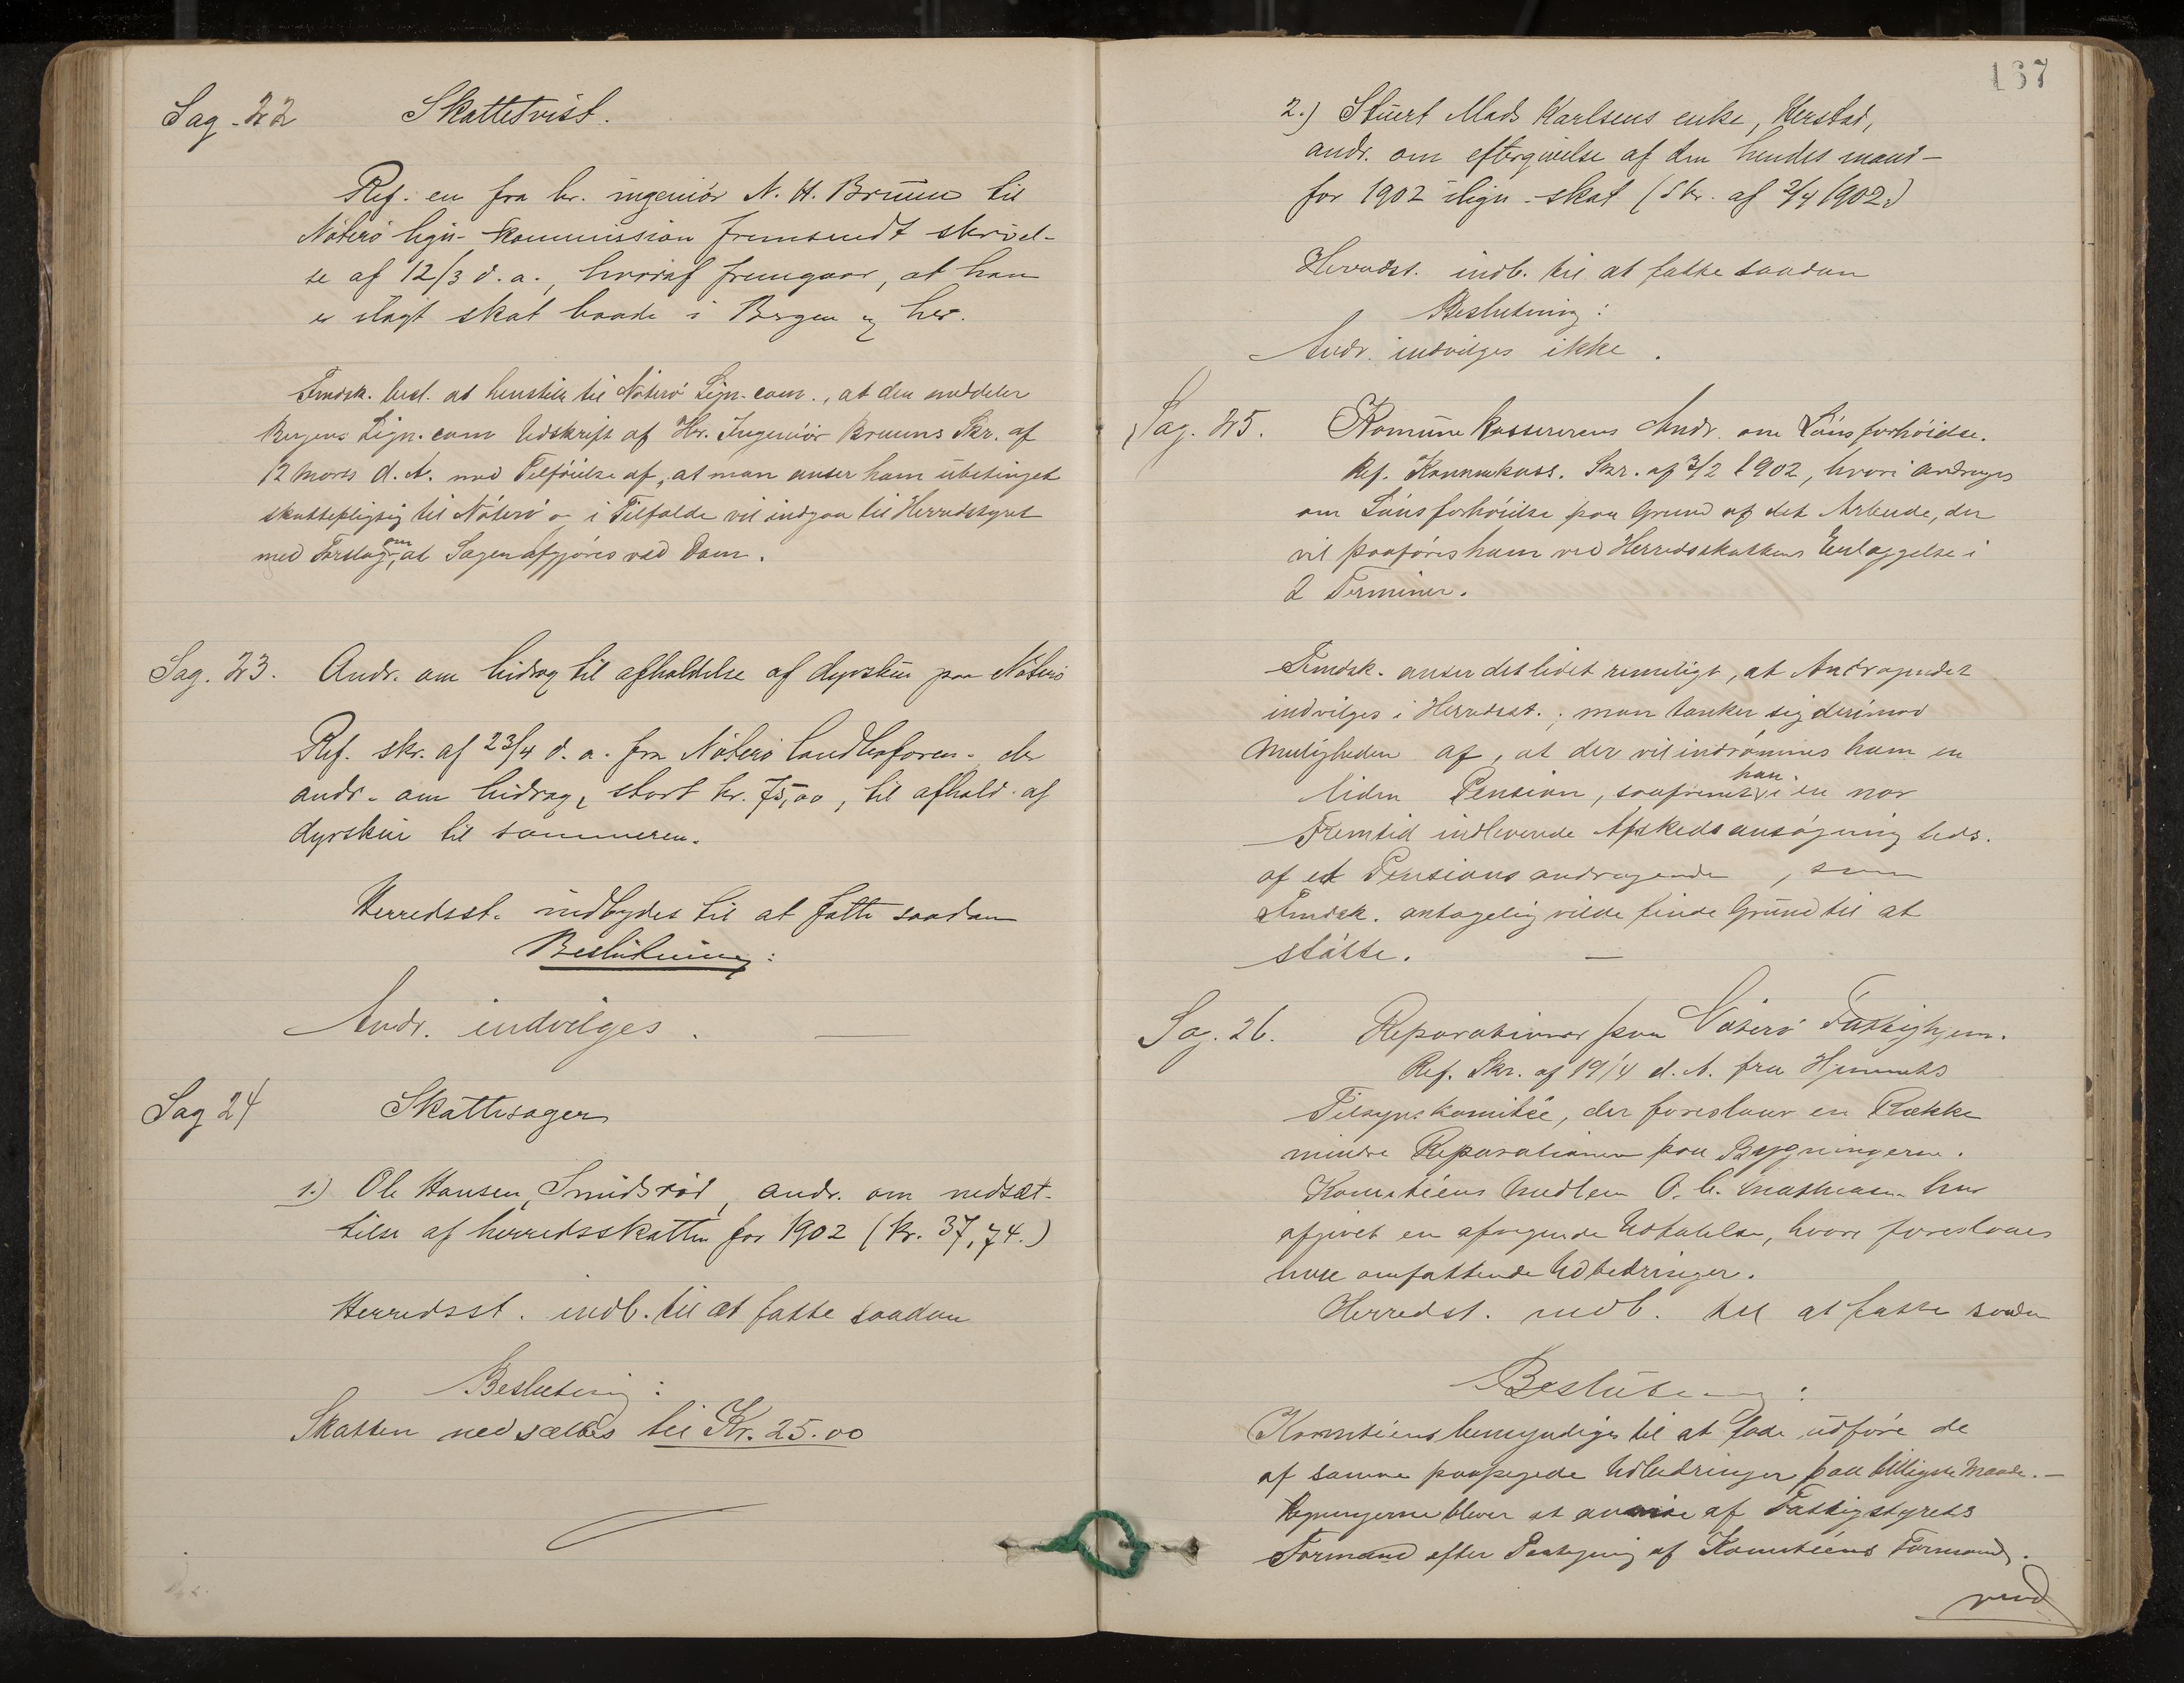 Sag. 22 Skattetvist.
Ref. en fra hr. ingeniör N. H. Bruun til
Nöterö lign.-kommission fremsendt skrivel-
se af 12/3 d. a., hvoraf fremgaar, at han
er ilagt skat baade i Bergen og her.
Fmdsk. besl. at henstille til Nöterö Lign.com., at den meddeler
Bergens Lign.com Udskrift af Hr. Ingeniör Bruuns Skr. af
12 Marts d. A. med Tilföielse af, at man anser ham ubetinget
skattepligtig til Nöterö o. i Tilfælde vil indgaa til Herredsstyret
med Forslag om, at Sagen afgjöres ved Dom.
Sag. 23. Andr. om bidrag til afholdelse af dyrskue paa Nöterö
Ref. skr. af 23/4 d. a. fra Nöterö landboforen. der
andr. om bidrag, stort kr. 75,00, til afhold. af
dyrskue til sommeren.
Herredsst. indbydes til at fatte saadan
Beslutning:
Andr. indvilges.
Sag 24 Skattesager
1.) Ole Hansen, Smidsröd, andr. om nedsæt-
telse af herredsskatten for 1902 (kr. 37,74.)
Herredsst. indb. til at fatte saadan
Beslutning:
Skatten nedsættes til Kr. 25.00
167
2.) Stuert Mads Karlsens enke, Herstad,
andr. om eftergivelse af den hendes mand
for 1902 ilign. skat (Skr. af 2/4 1902.)
Herredst. indb. til at fatte saadan
Beslutning:
Andr. indvilges ikke.
Sag. 25. Kommunekassererens Andr. om Lönsforhöielse.
Ref. Kommunekass. Skr. af 3/2 1902, hvori andrages
om Lönsforhöielse paa Grund af det Arbeide, der
vil paaföres ham ved Herredsskattens Erlæggelse i
2 Terminer.
Fmdsk. anser det lidet rimeligt, at Andragendet
indvilges i Herredsst.; man tænker sig derimod
Muligheden af, at der vil indrömmes ham en
liden Pension, saafremt han i en nær
Fremtid indleverede Afskedsansögning leds.
af et Pensionsandragende, som
Fmdsk. antagelig vilde finde Grund til at
stötte.
Sag. 26. Reparationer paa Nöterö Fattighjem.
Ref. Skr. af 19/4 d. A. fra Hjemmets
Tilsynskomitée, der foreslaar en Række
mindre Reparationer paa Bygningerne.
Komitéens Medlem O. C. Mathiasen har
afgivet en afvigende Udtalelse, hvori foreslaaes
mere omfattende Udbedringer.
Herredst. indb. til at fatte saadan
Beslutning:
Komitéens bemyndiges til at lade udföre de
af samme paapegede Udbedringer paa billigste Maade.
Regningerne bliver at anvise af Fattigstyrets
Formand efter Paategning af Komitéens Formand.
vend